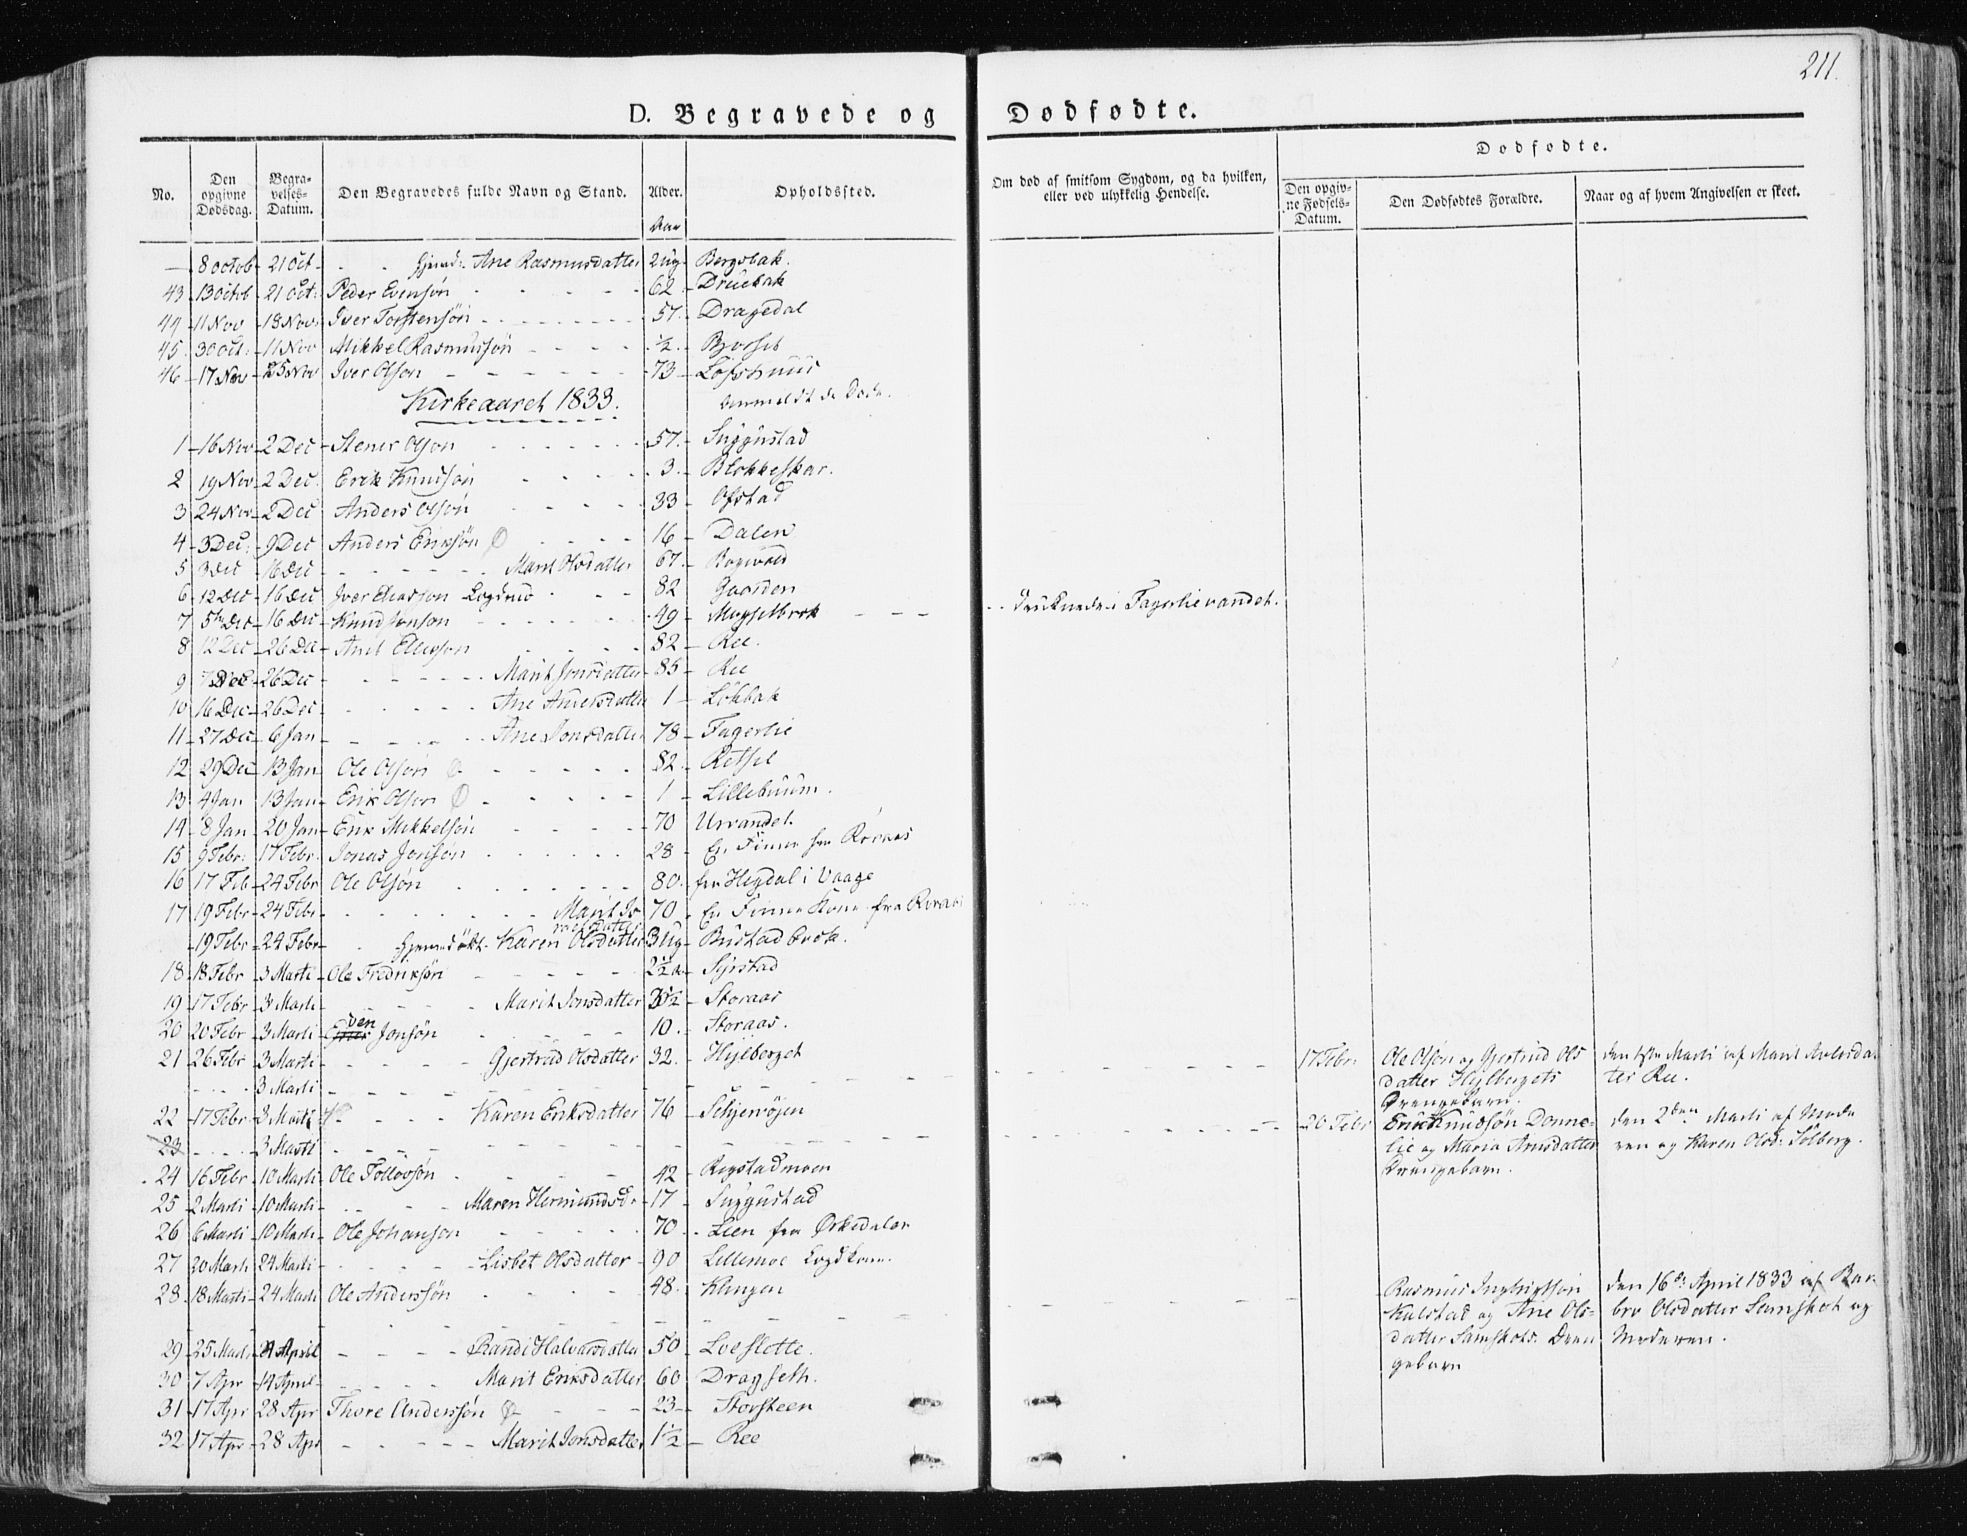 211.
D. Begravede og Dødfødte.
No.
Den opgivne Dødsdag.
Begravelses-Datum.
Den Begravedes fulde Navn og Stand.
Alder.
Opholdssted.
Om død af smitsom Sygdom, og da hvilken, eller ved ulykkelig Hendelse.
Dødfødte.
Den opgivne Fødsels-Datum.
Den Dødfødtes Forældre.
Naar og af hvem Angivelsen er skeet.
Aar
— 8 octob 21 Oct Ane Rasmusdatter Bergsbak.
43 13 octob 21 Oct: Peder Evensøn 62
44 11 Nov 18 Nov: Iver Torstensøn 57 Dragedal
45 30 Oct: 11 Nov Mikkel Rasmusøn ½
46 17 Nov 25 Nov Iver Olson 73 Lofshuus
Kirkeaaret 1833. anmeldt de Døde.
1 16 Nov 2 Dec Stener Olson 57 Suggustad
2 19 Nov 2 Dec Erik Knudsøn 3 Blokkeskar.
3 24 Nov 2 Dec Anders Olsøn 33 Ofstad
4 3 Dec: 9 Dec Anders Eriksøn 16 Dalen
5 3 Dec 16 Dec Marit Olsdatter 67
6 12 Dec 16 Dec Iver 82 Gaarden
7 5te Dec 16 Dec Knud Jonson 49 i Fagerlievandet.
8 12 Dec 26 Dec 82 Ree.
9 7 Dec 26 Dec Marit Jonsdatter 85 Ree
10 16 Dec 26 Dec Ane Andersdatter 1 Løkbak
11 27 Dec 6 Jan Ane Jonsdatter 78 Fagerlie
12 29 Dec 13 Jan Ole Olsøn 82
13 4 Jan 13 Jan Erik Olson 1 Lillebuum.
14 8 Jan 20 Jan Erik Mikkelsøn 70 Urvandet.
15 9 Febr: 17 Febr. Jonas Jonsøn 28 En Finne fra Røraas
16 17 Feb 24 Febr Ole Olsøn 80 fra Hegdal i Vaage
17 19 Febr 24 Febr Marit 70 En Finne Kone fra Røraas
19 Febr 24 Febr Hjemedøbt. Karen Olsdatter 3 Ug Bustadbrok.
18 18 Febr 3 Marti Ole Fredriksøn 2½ a Syrstad
19 17 Febr 3 Marti Marit Jonsdatter Storaas
20 20 Febr 3 Marti Jonsøn 10 Storaas.
21 26 Febr 3 Marti Gjertrud Olsdatter 32. Hejlberget
3 Marti 17 Febr: Ole Olsøn og Gjertrud Ols
datter Hejlbergets
Drengebarn.
den 1ste Marti af Marit
ter Ree.
22 17 Febr 3 Marti Karen Eriksdatter 76
23 3 Marti 20 Febr Erik Knudsøn Donne-
lie og Maria Arnsdatter
Drengebarn.
den 2den Marti af Mode
ren og Karen Olsd: Solberg.
24 16 Febr 10 Marti Ole 42 Rogstadmoen
25 2 Marti 10 Marti Maren Hermundsdr 17 Suggustad
26 6 Marti 10 Marti Ole Johanson 70 Lien fra Ørkedalen
27 20 Marti 24 Marti Lisbet Olsdatter 90 Lillemoe Lægdkone.
28 18 Marti 24 Marti Ole Anderssøn 48
Rasmus Ingbrigtson
Kalstad og Ane Ols-
datter Samskots Dren
gebarn
den 16de April 1833 af Bar
bro Olsdatter Samskot og
Moderen.
29 25 Marti April Randi Halvarsdatter 50 Loeslette.
30 7 Apr 14 April Marit Eriksdatter 60 Dragseth.
31 17 Apr 28 Apr Thore Anderssøn 23 Storsteen
32 17 Apr 28 Apr Marit Jonsdatter 1½ Ree